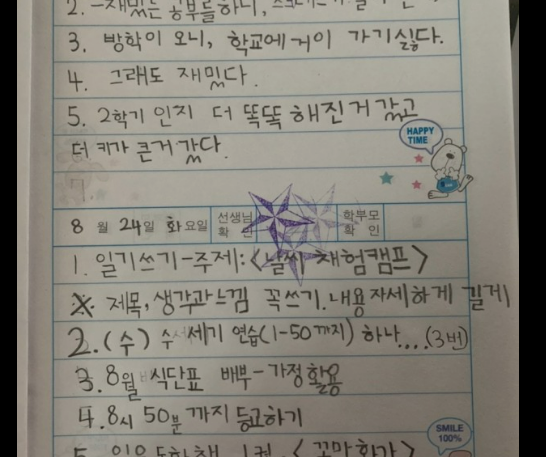 2. 재밌는 공부를하니,
3. 방학이 오니, 학교에거이 가기싫다.
4. 그래도 재밌다.
5. 2학기 인지 더 똑똑 해진거 같고
더 키가 큰거 같다.
HAPPY TIME
8 월 24일 화요일 선생님 확인 학부모 확인
1. 일기쓰기-주제:<날씨 채험캠프>
※. 제목, 생각과느낌 꼭쓰기. 내용자세하게 길게
2.(수) 수 세기 연습(1-50까지) 하나....(3번)
3. 8월 식단표 배부-가정활용
4. 8시 50분까지 등교하기
SMILE 100%
5. 읽을 동화책 1권. <꼬마화가>